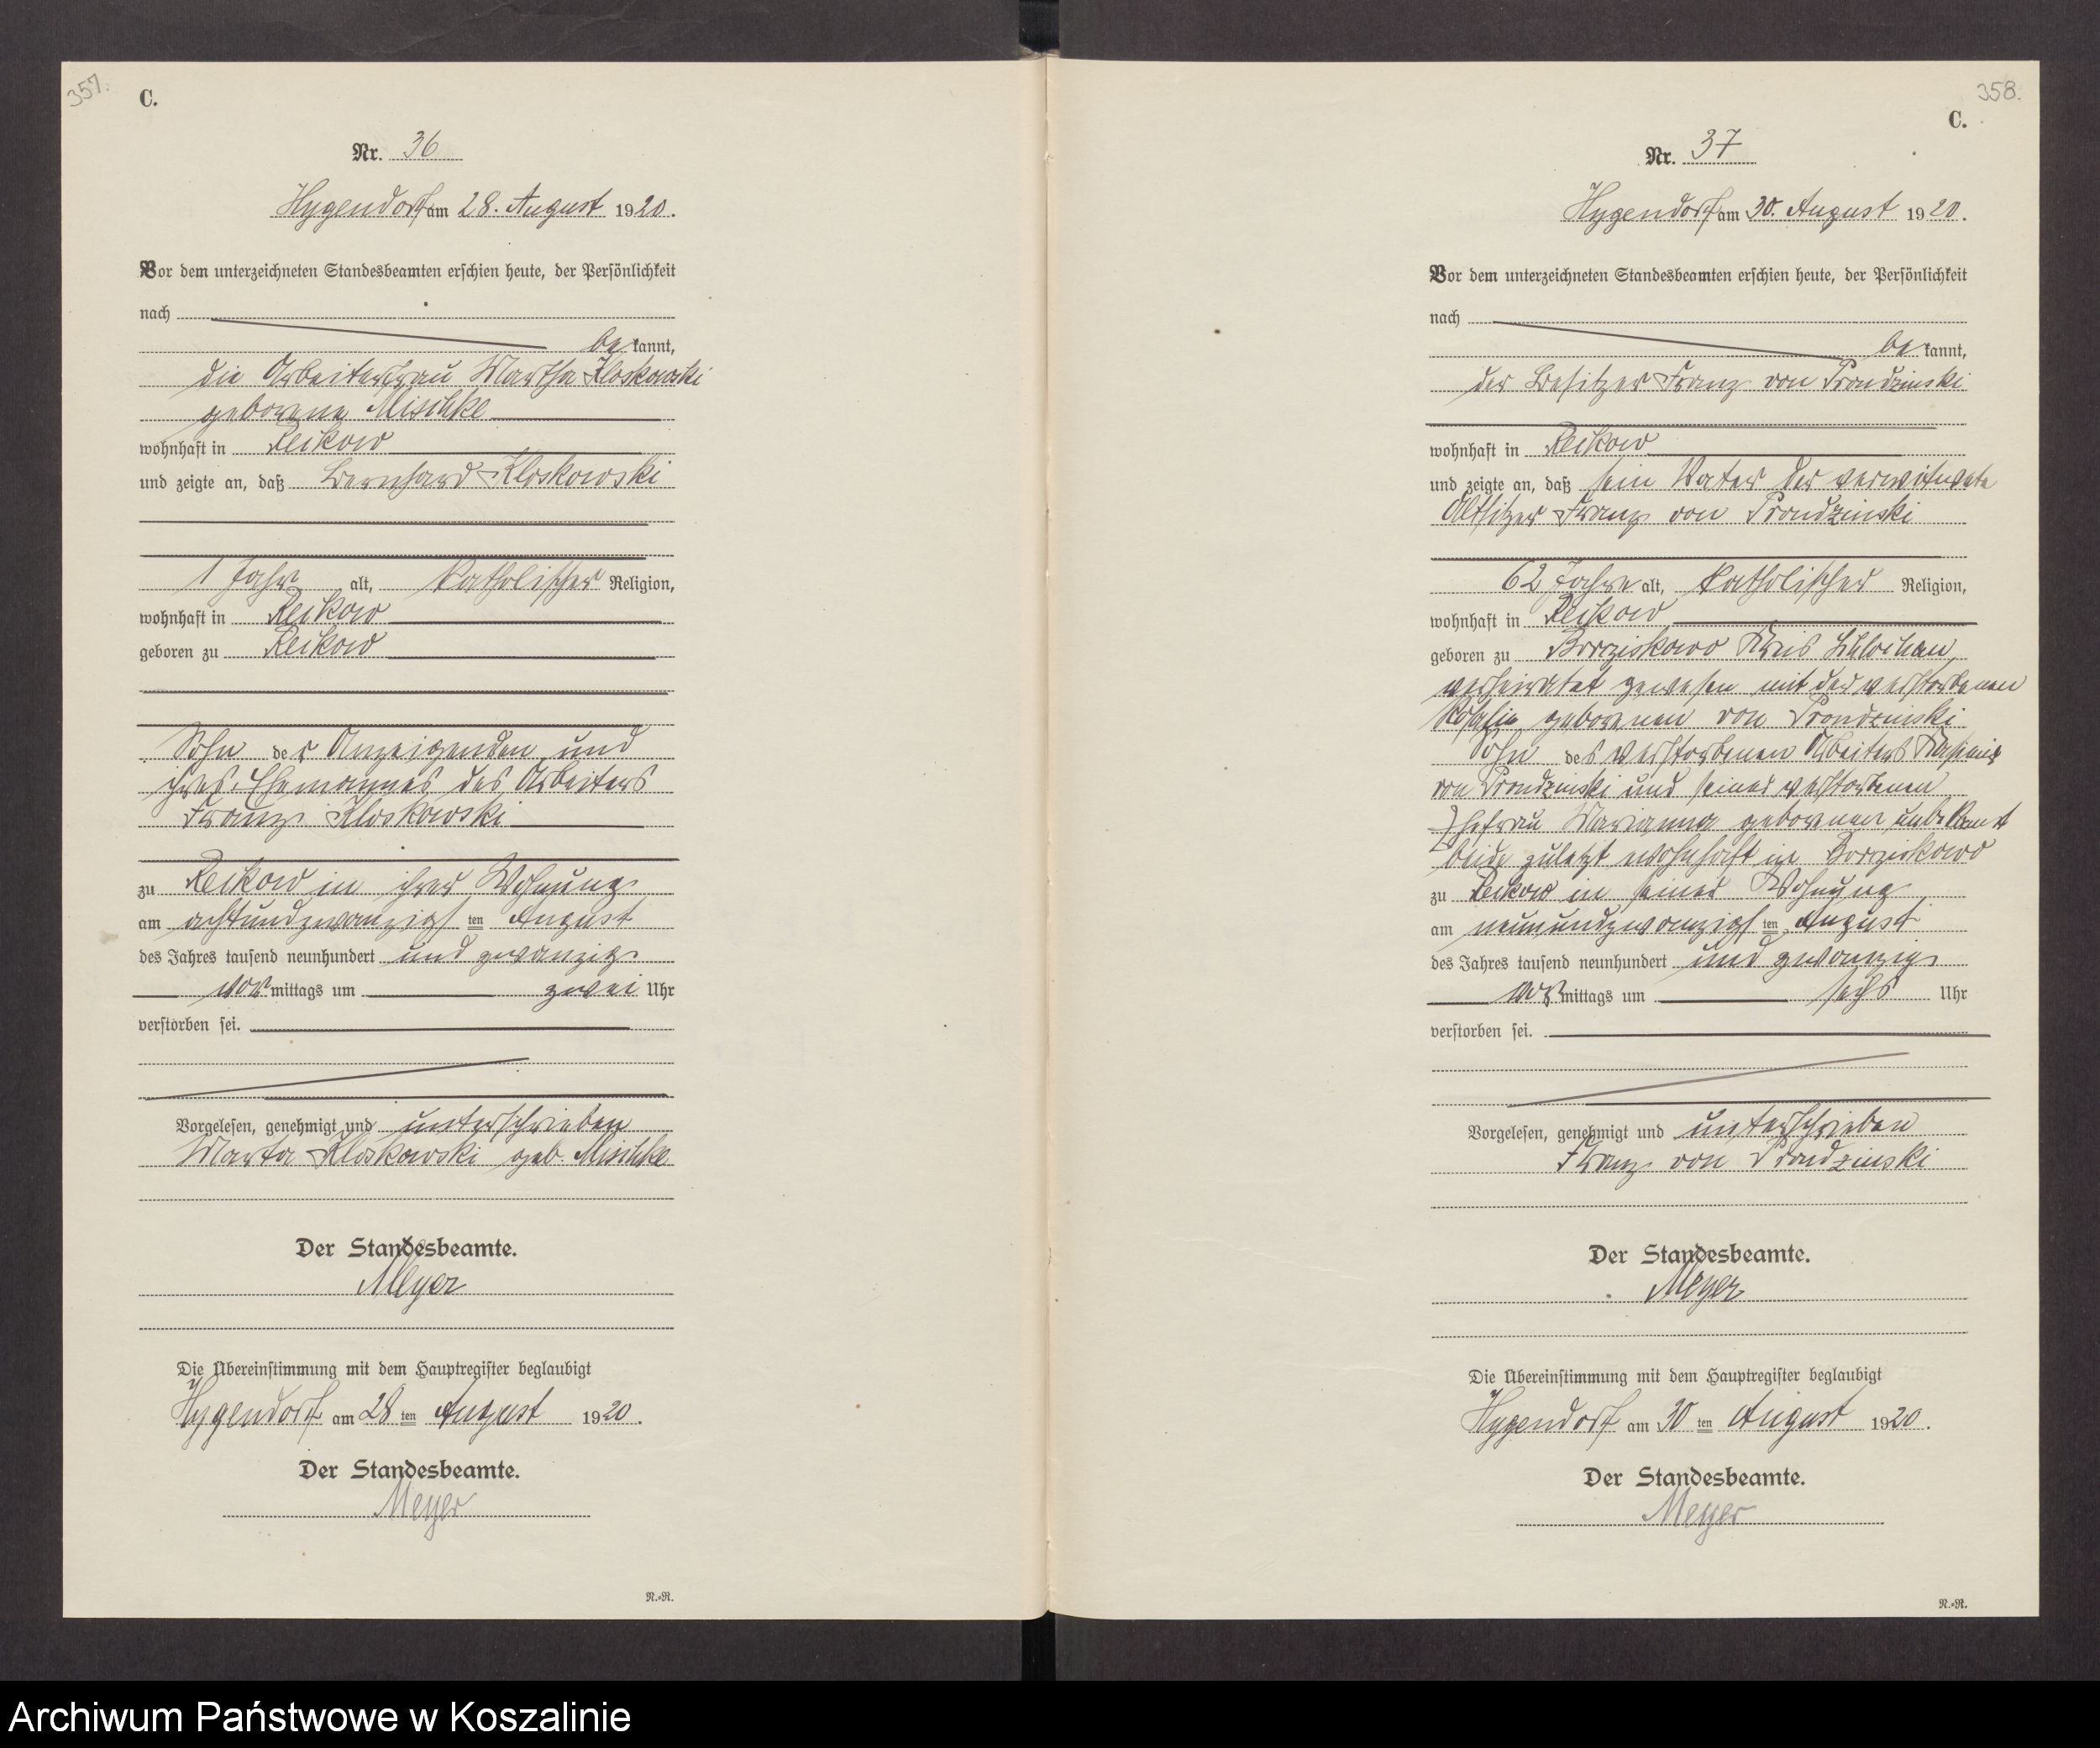 357.
C.
Nr. 36
Hygendorf am 28. August 1920.
Vor dem unterzeichneten Standesbeamten erschien heute, der Persönlichkeit
nach
be kannt,
die Arbeiterfrau Martha Kloskowski
geborene Mischke
wohnhaft in Reikow
und zeigte an, daß Bernhard Kloskowski
1 Jahr alt, katholischer Religion,
wohnhaft in Reikow
geboren zu Reikow
Sohn der Anzeigenden und
ihres Ehemannes des Arbeiters
Franz Kloskowski
zu Reikow in ihrer Wohnung
am achtundzwanzigsten August
des Jahres tausend neunhundert und zwanzig
vormittags um zwei Uhr
verstorben sei.
Vorgelesen, genehmigt und unterschrieben
Marta Kloskowski geb. Mischke
Der Standesbeamte.
Meyer
Die Übereinstimmung mit dem Hauptregister beglaubigt
Hygendorf am 28 ten August 1920.
Der Standesbeamte.
Meyer
N.=R.
358.
C.
Nr. 37
Hygendorf am 30. August 1920.
Vor dem unterzeichneten Standesbeamten erschien heute, der Persönlichkeit
nach
be kannt,
der Besitzer Franz von Prondzinski
wohnhaft in Reikow
und zeigte an, daß sein Vater der verwitwete
Altsitzer Franz von Prondzinski
62 Jahre alt, katholischer Religion,
wohnhaft in Reikow
geboren zu Borzyskowo Kreis Schlochau,
verheiratet gewesen mit der verstorbenen
geborenen von Prondzinski
Sohn des verstorbenen Arbeiters Kasimir
von Prondzinski und seiner verstorbenen
Ehefrau Marianna geborenen unbekannt
beide zuletzt wohnhaft in
zu Reikow in seiner Wohnung
am neunundzwanzigsten August
des Jahres tausend neunhundert und zwanzig
vormittags um sechs Uhr
verstorben sei.
Vorgelesen, genehmigt und unterschrieben
Franz von Prondzinski
Der Standesbeamte.
Meyer
Die Übereinstimmung mit dem Hauptregister beglaubigt
Hygendorf am 30 ten August 1920.
Der Standesbeamte.
Meyer
N.=R.
Archiwum Państwowe w Koszalinie